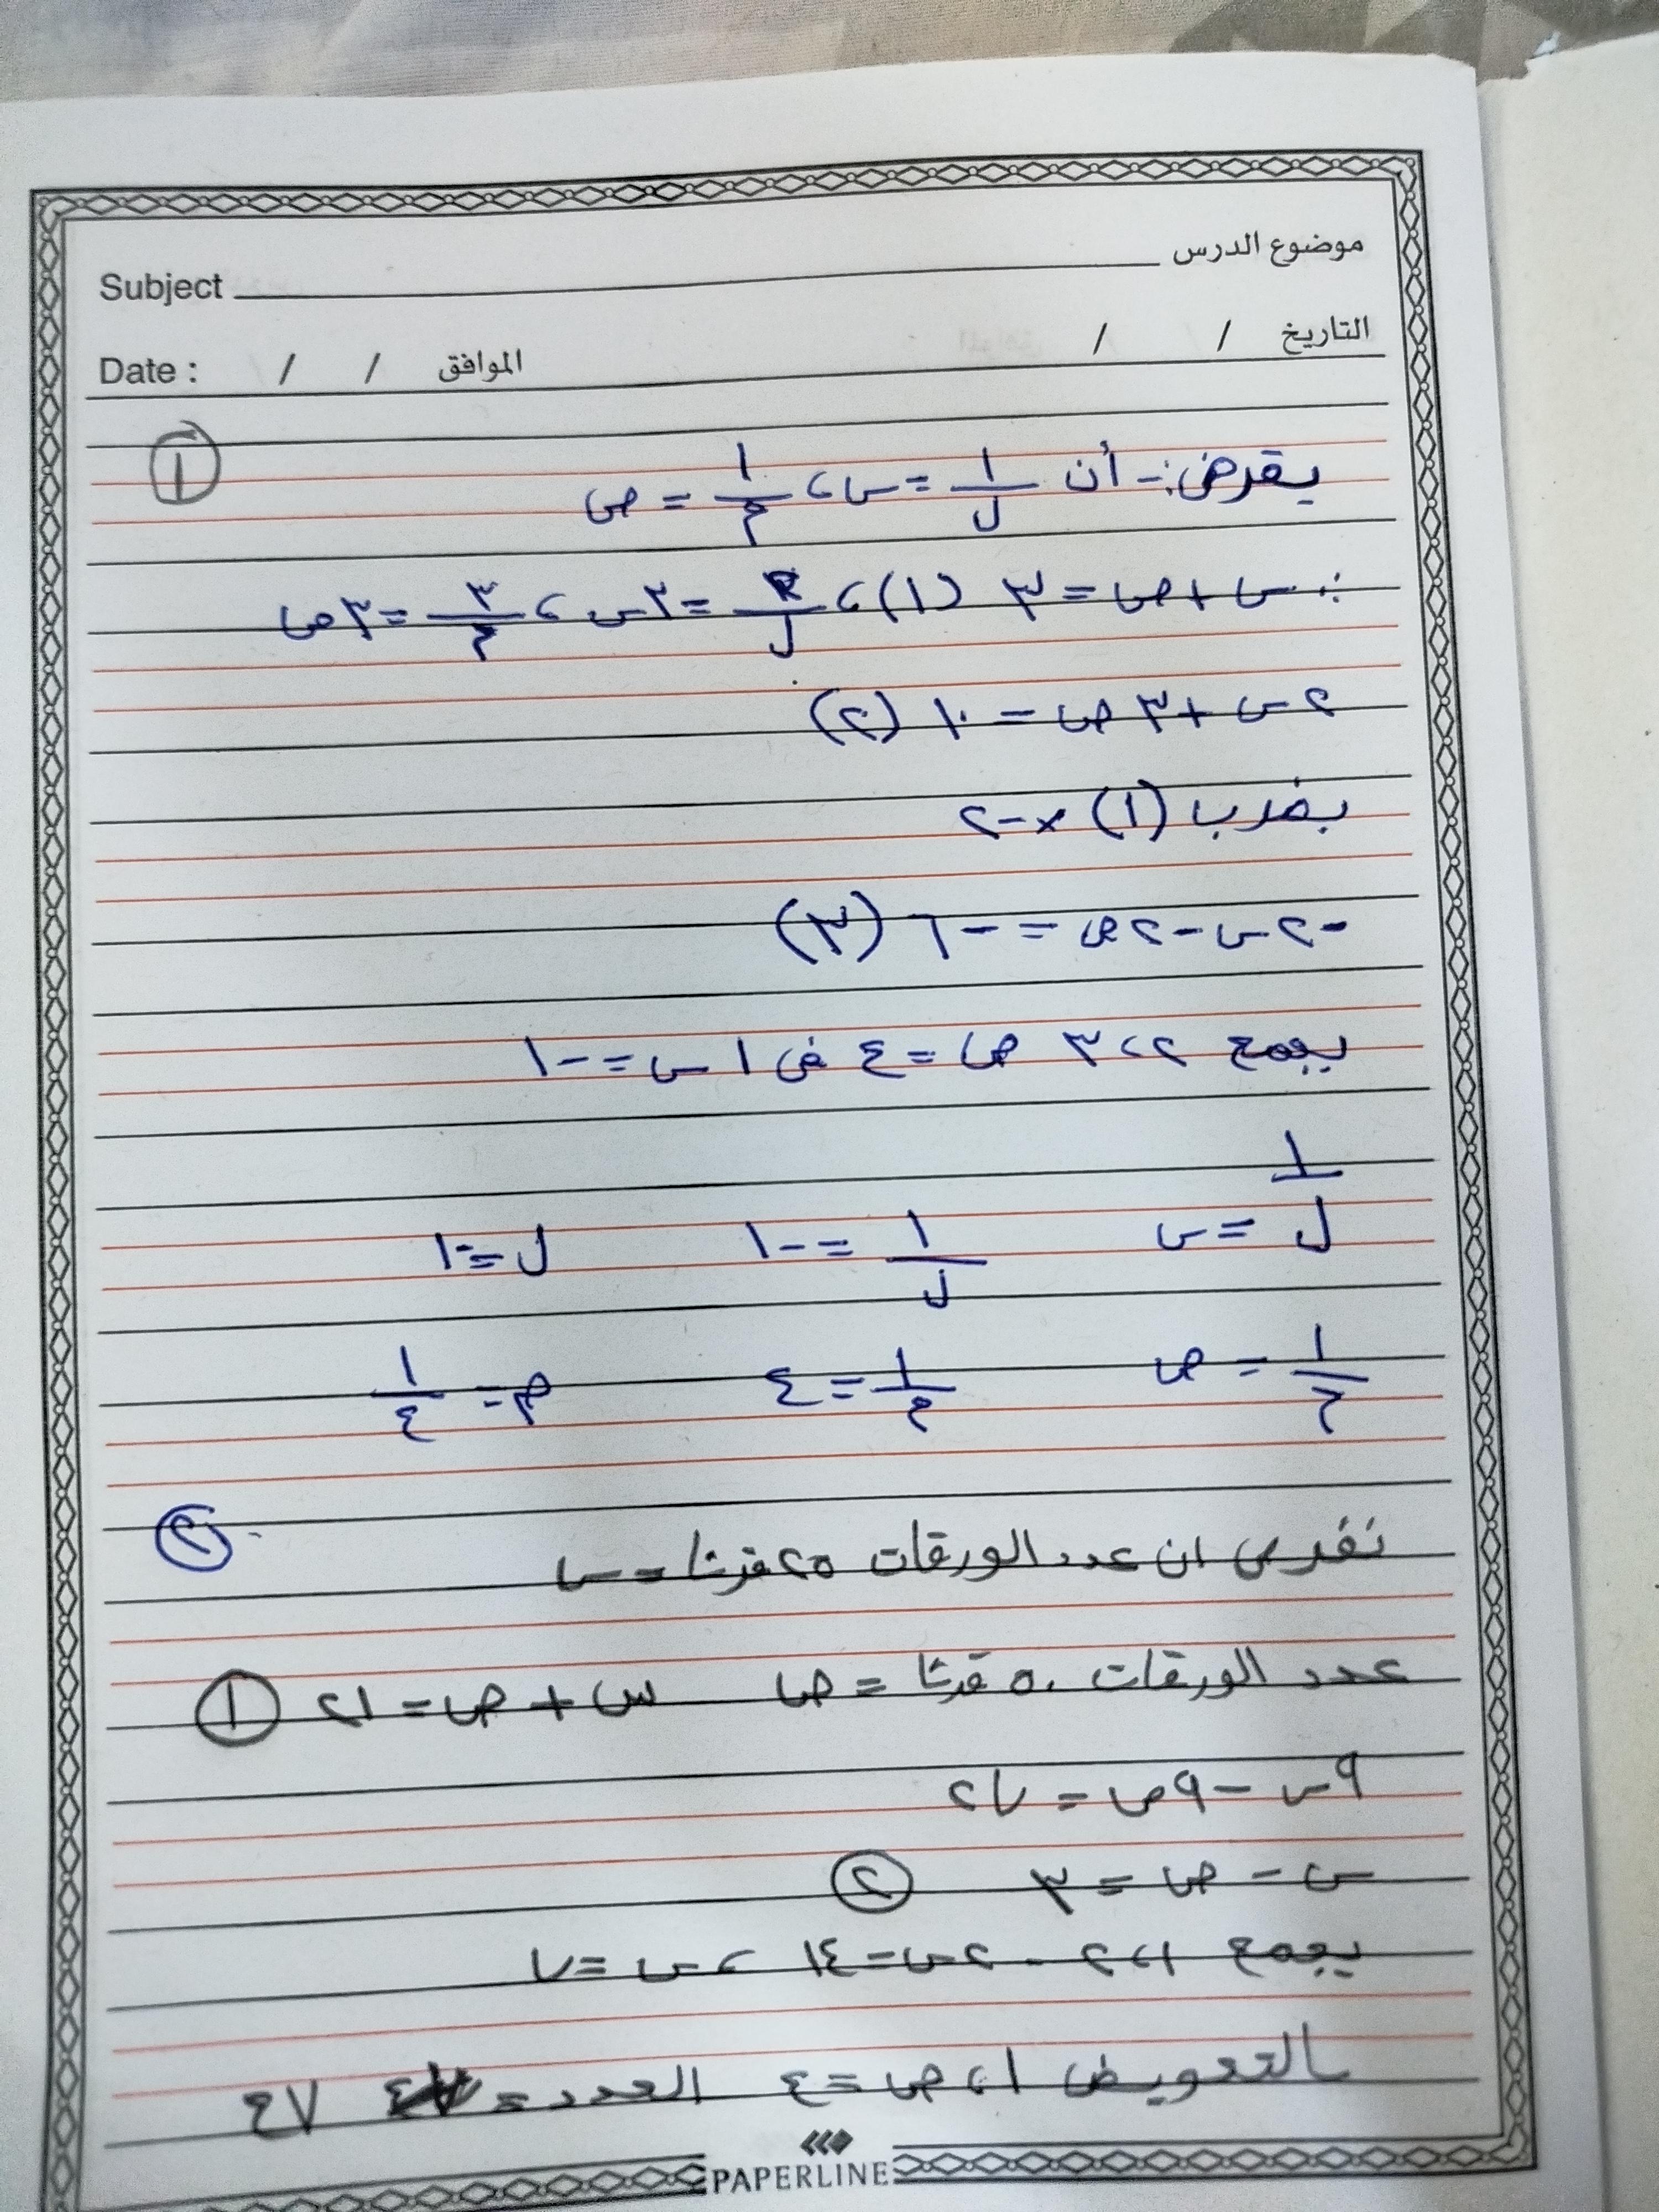 موضوع الدرس
Subject
التاريخ / /
الموافق / / Date :
①
يفرض:- أن ١/ل = س، ١/م = ص
∴ س + ص = ٣ (١)، ٢/ل = ٢س، ٣/م = ٣ص
٢س + ٣ص = ١٠ (٢)
بضرب (١) × -٢
-٢س - ٢ص = -٦ (٣)
بجمع ٢، ٣ ص = ٤ في ١ س = -١
١/ل = س ١/ل = -١ ل = -١
١/م = ص ١/م = ٤ م = ١/٤
②
نفرض ان عدد الورقات ٢٥ قرشا = س
عدد الورقات ٥٠ قرشا = ص س + ص = ١٢ ①
٩س - ٩ص = ٢٧
س - ص = ٣ ②
بجمع ١، ٢ ٢س = ١٤، س = ٧
بالتعويض ١، ص = ٤ العدد = ٧٤
PAPERLINE